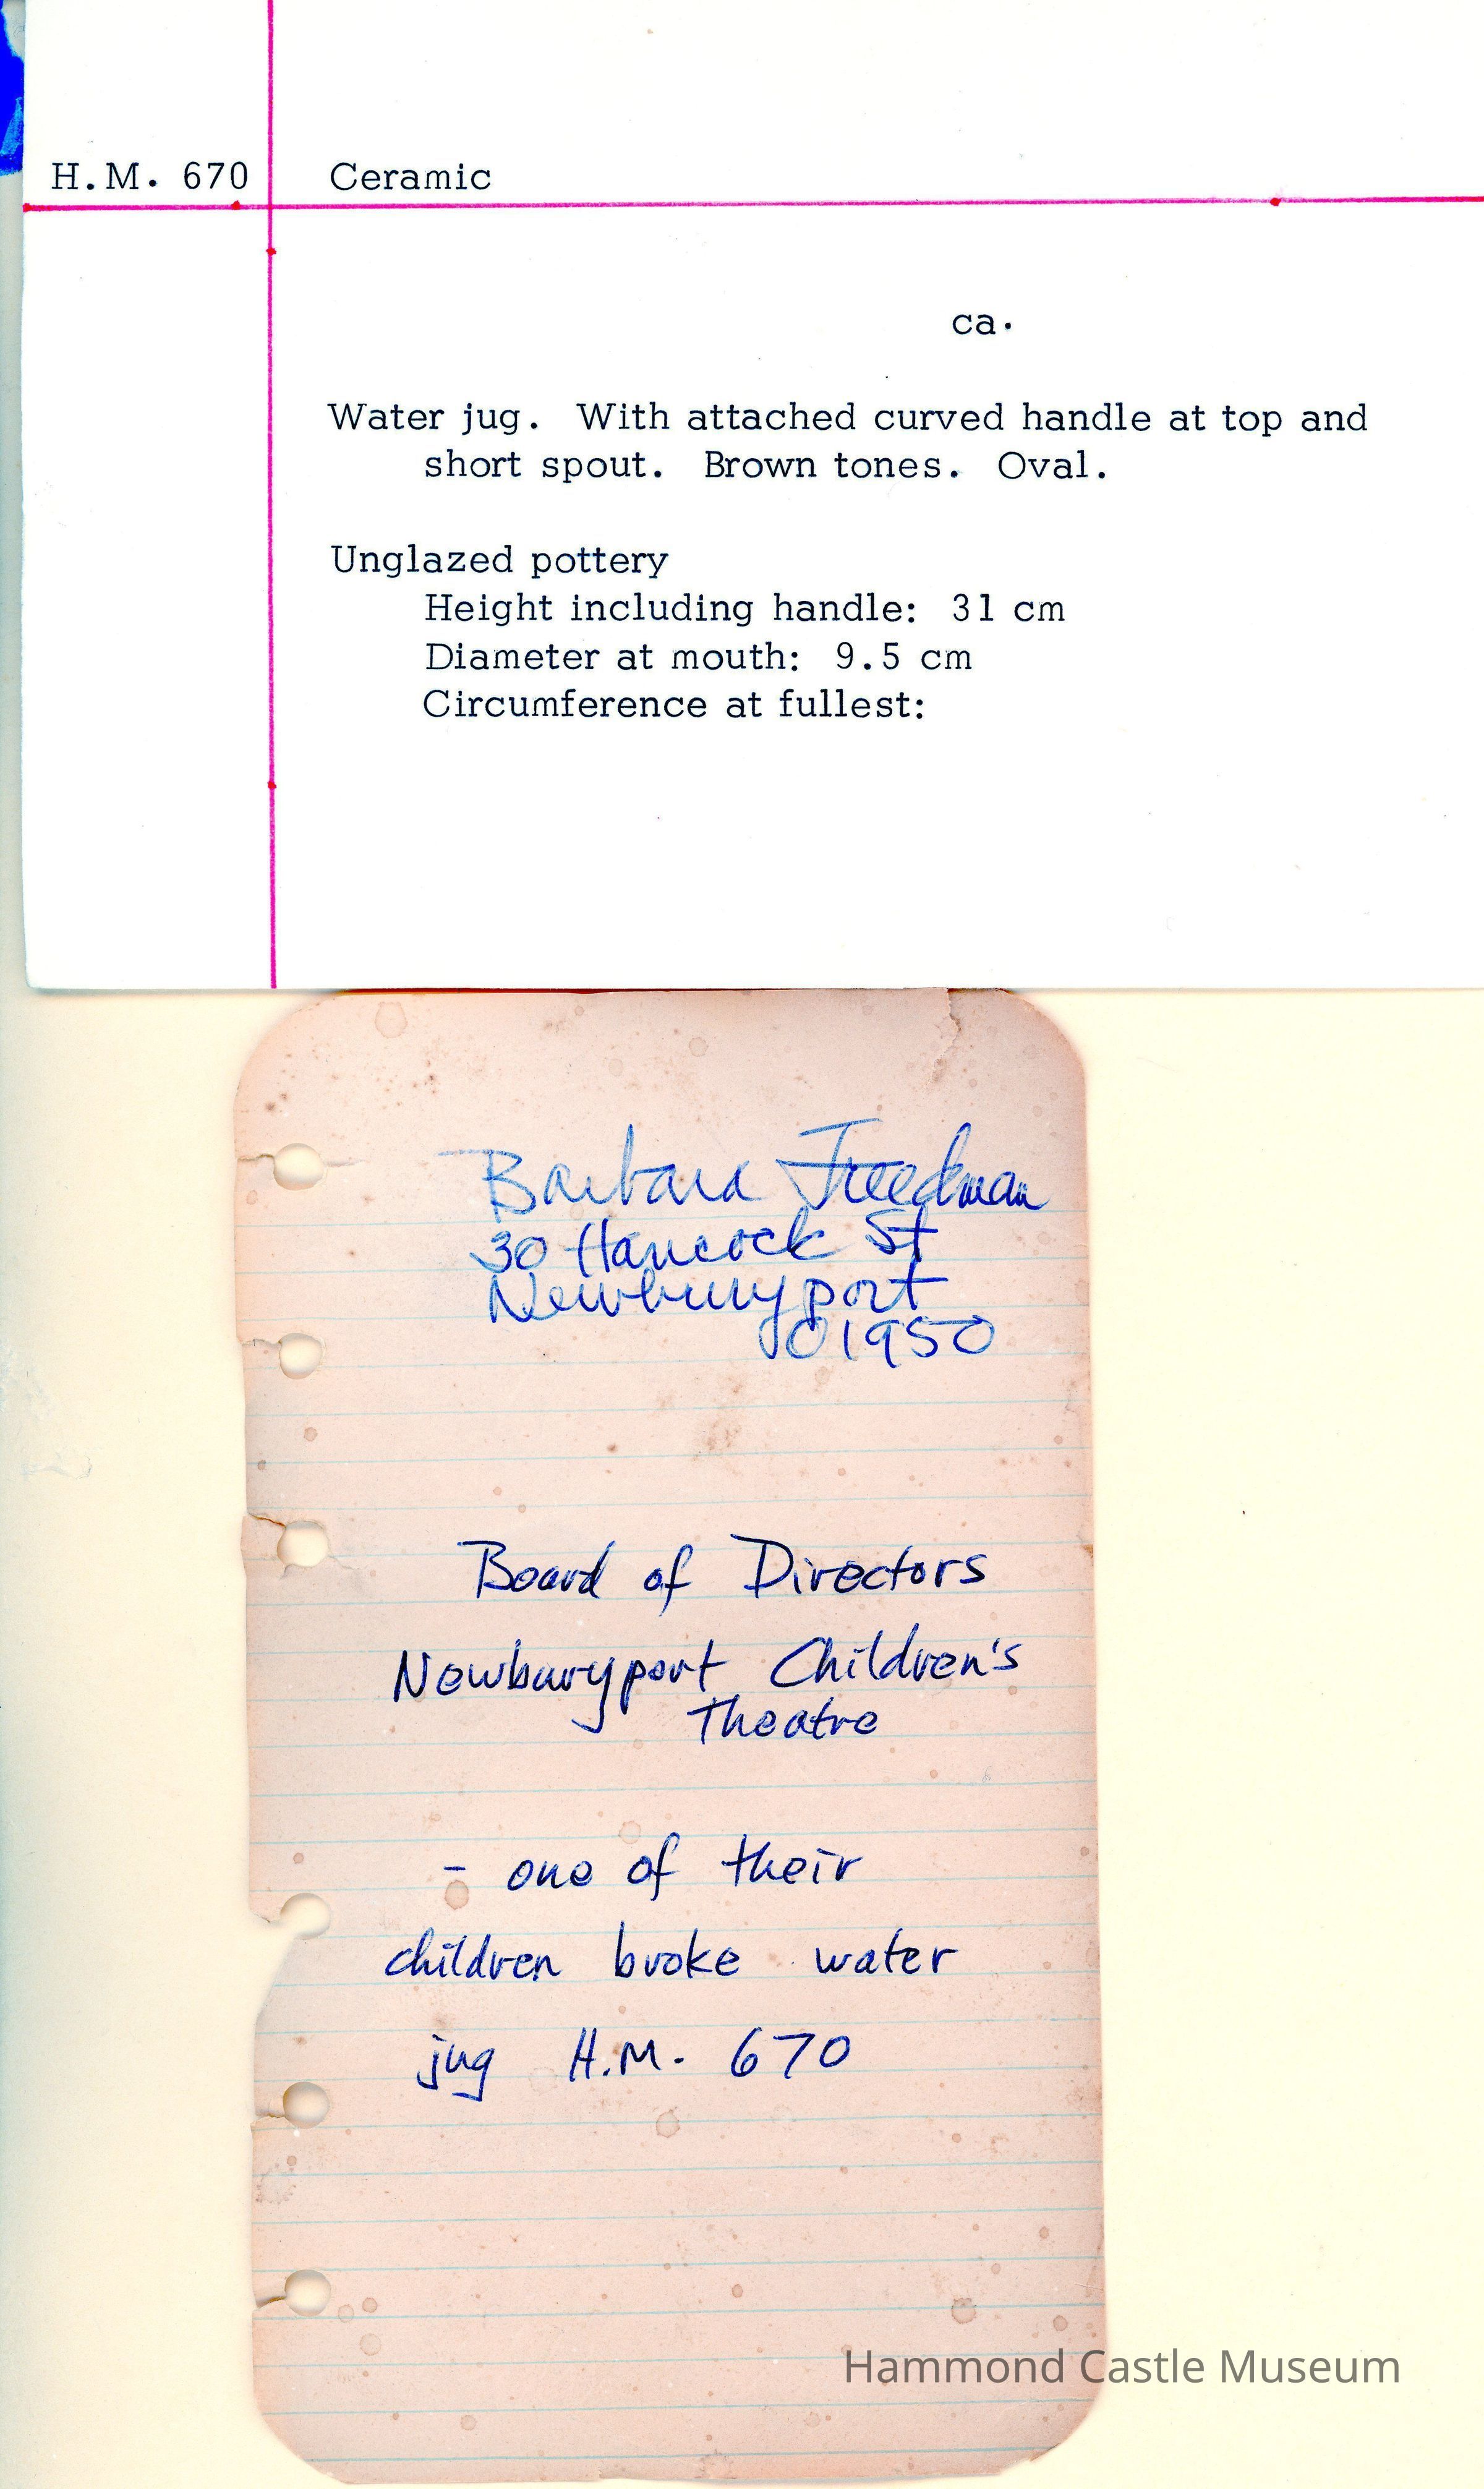 H.M. 670 Ceramic
ca.
Water jug. With attached curved handle at top and
short spout. Brown tones. Oval.
Unglazed pottery
Height including handle: 31 cm
Diameter at mouth: 9.5 cm
Circumference at fullest:
Barbara Freedman
30 Hancock St
Newburyport
01950
Board of Directors
Newburyport Children's
Theatre
- one of their
children broke water
jug H.M. 670
Hammond Castle Museum